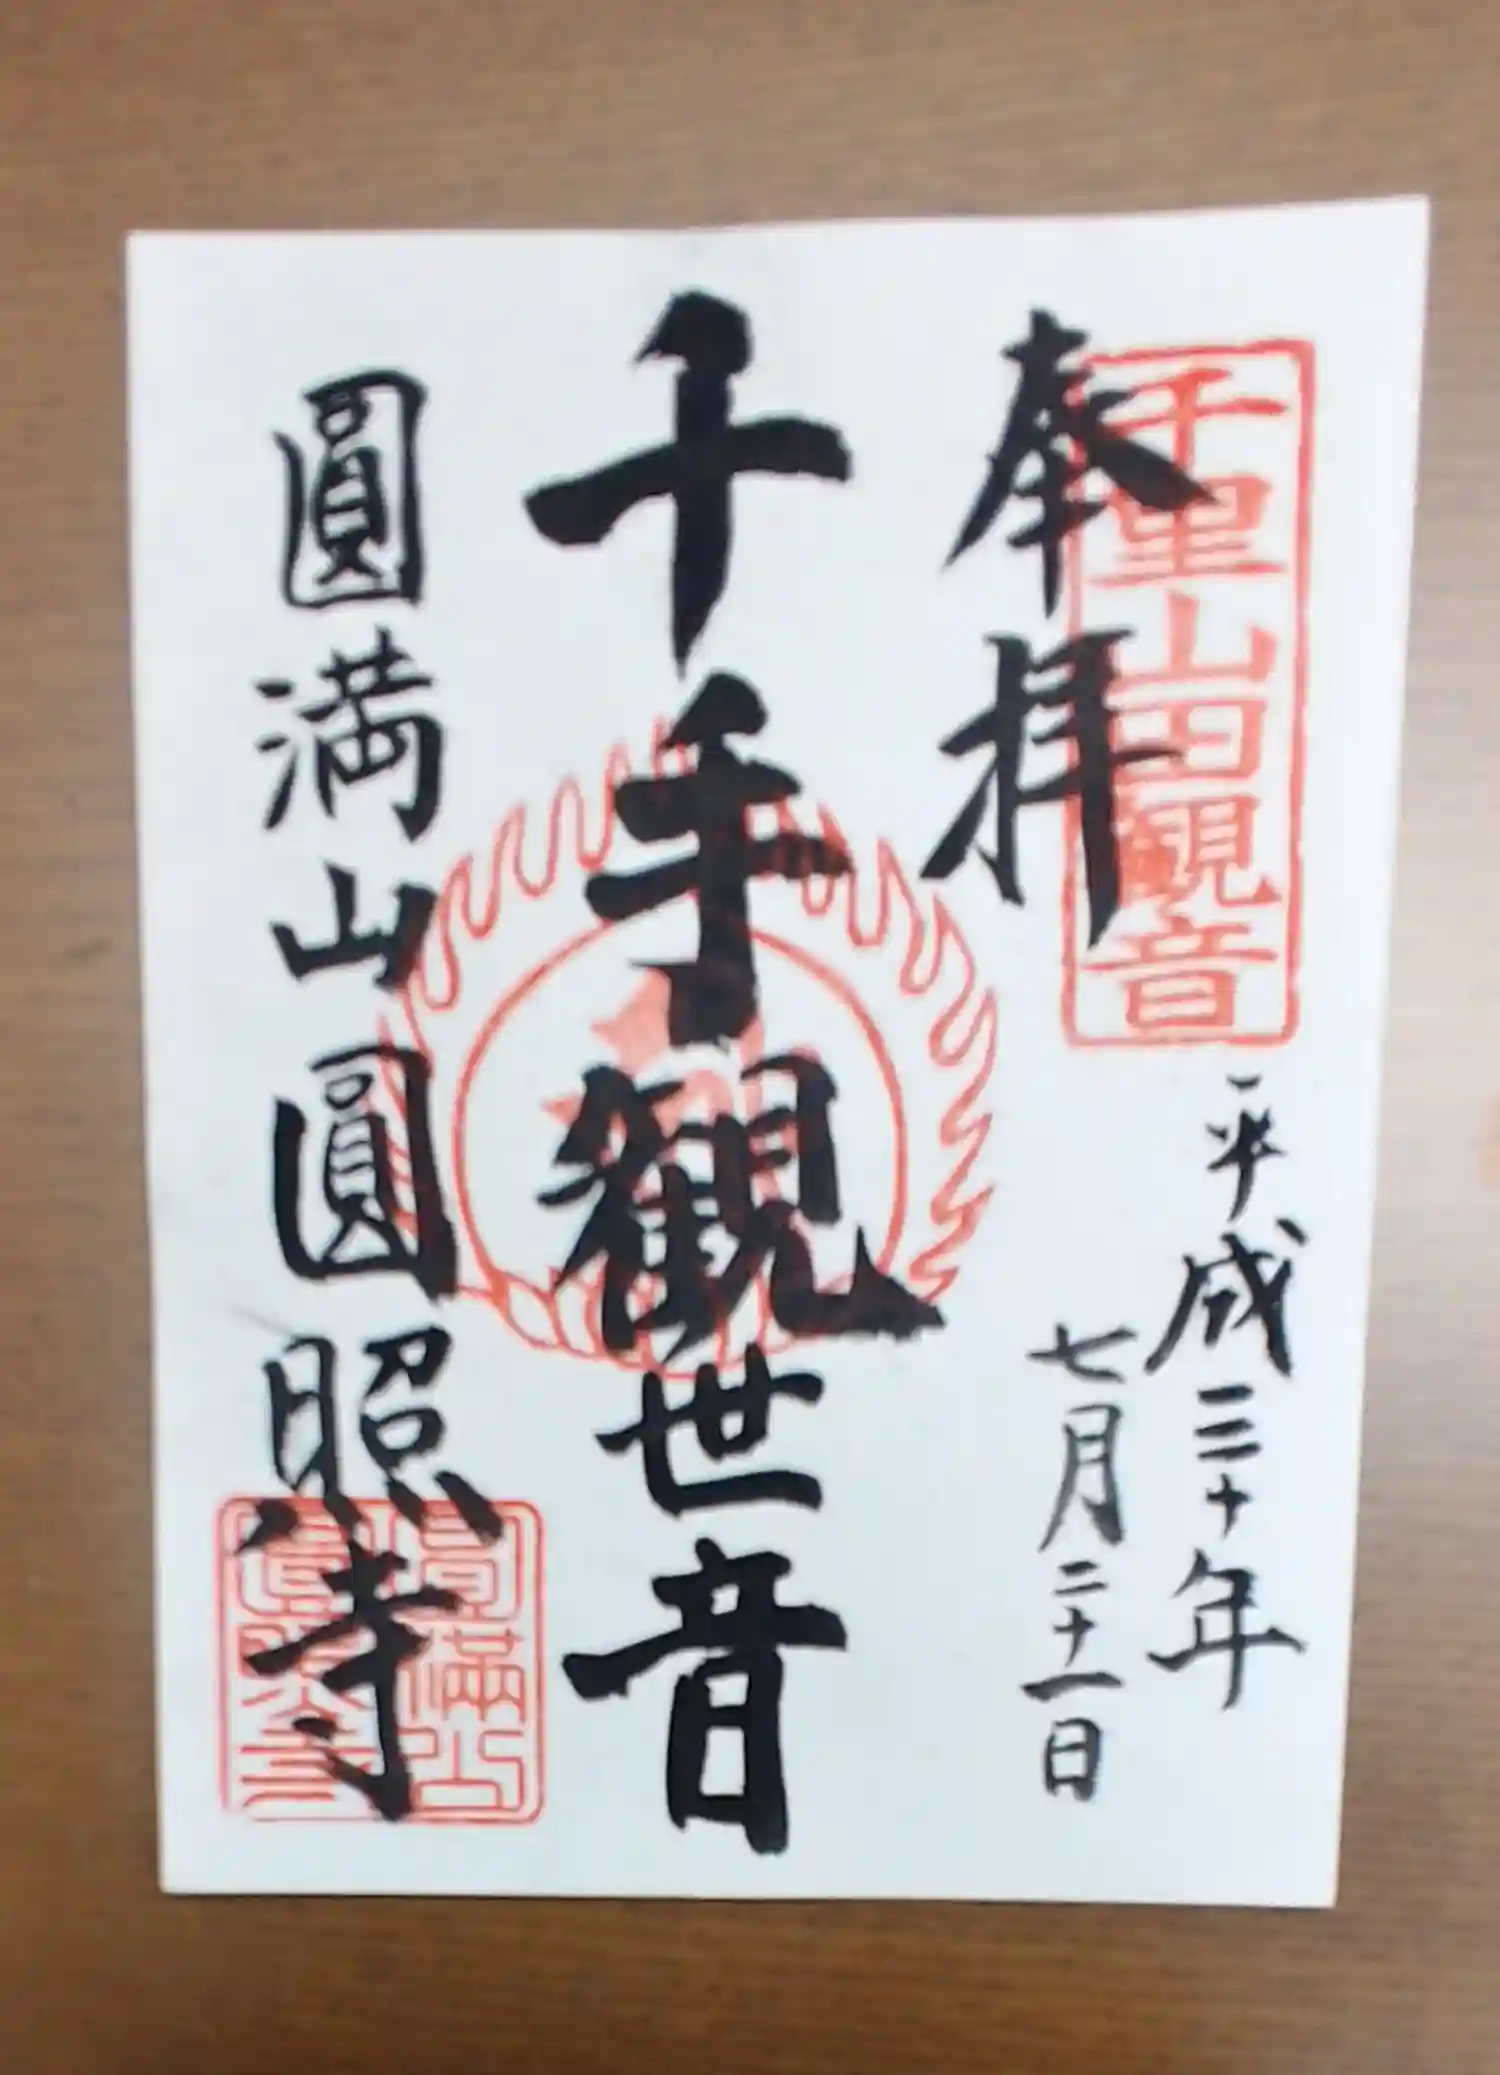 奉拝
千里山田観音
平成三十年
七月二十一日
千手観世音
圓満山圓照寺